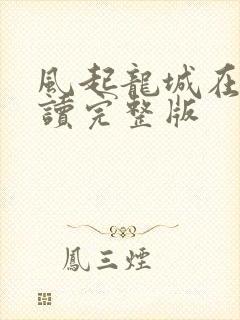 風起龍城在
讀完整版
鳳三煙